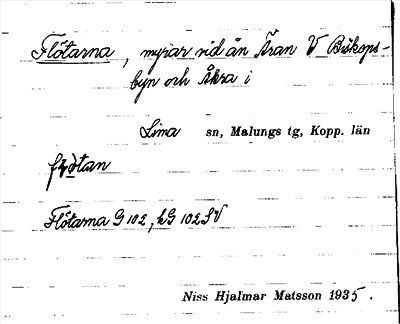 Flötarna, myrar vid ån Äran V Biskops-
byn och Åkra i
Lima sn, Malungs tg, Kopp. län
Flötarna G 102, LG 102 SV
Niss Hjalmar Matsson 1935.